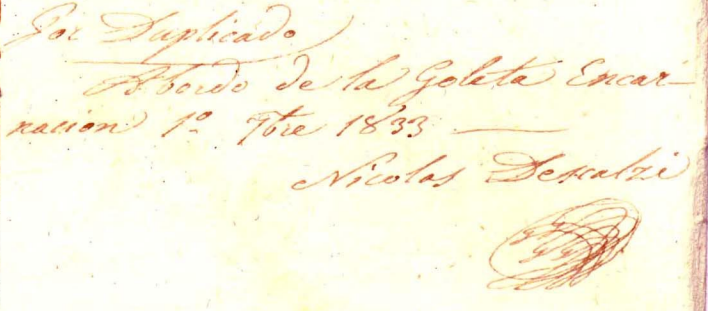 Por Duplicado
Abordo de la Goleta Encar-
nacion 1º 7bre 1833
Nicolas Descalzi